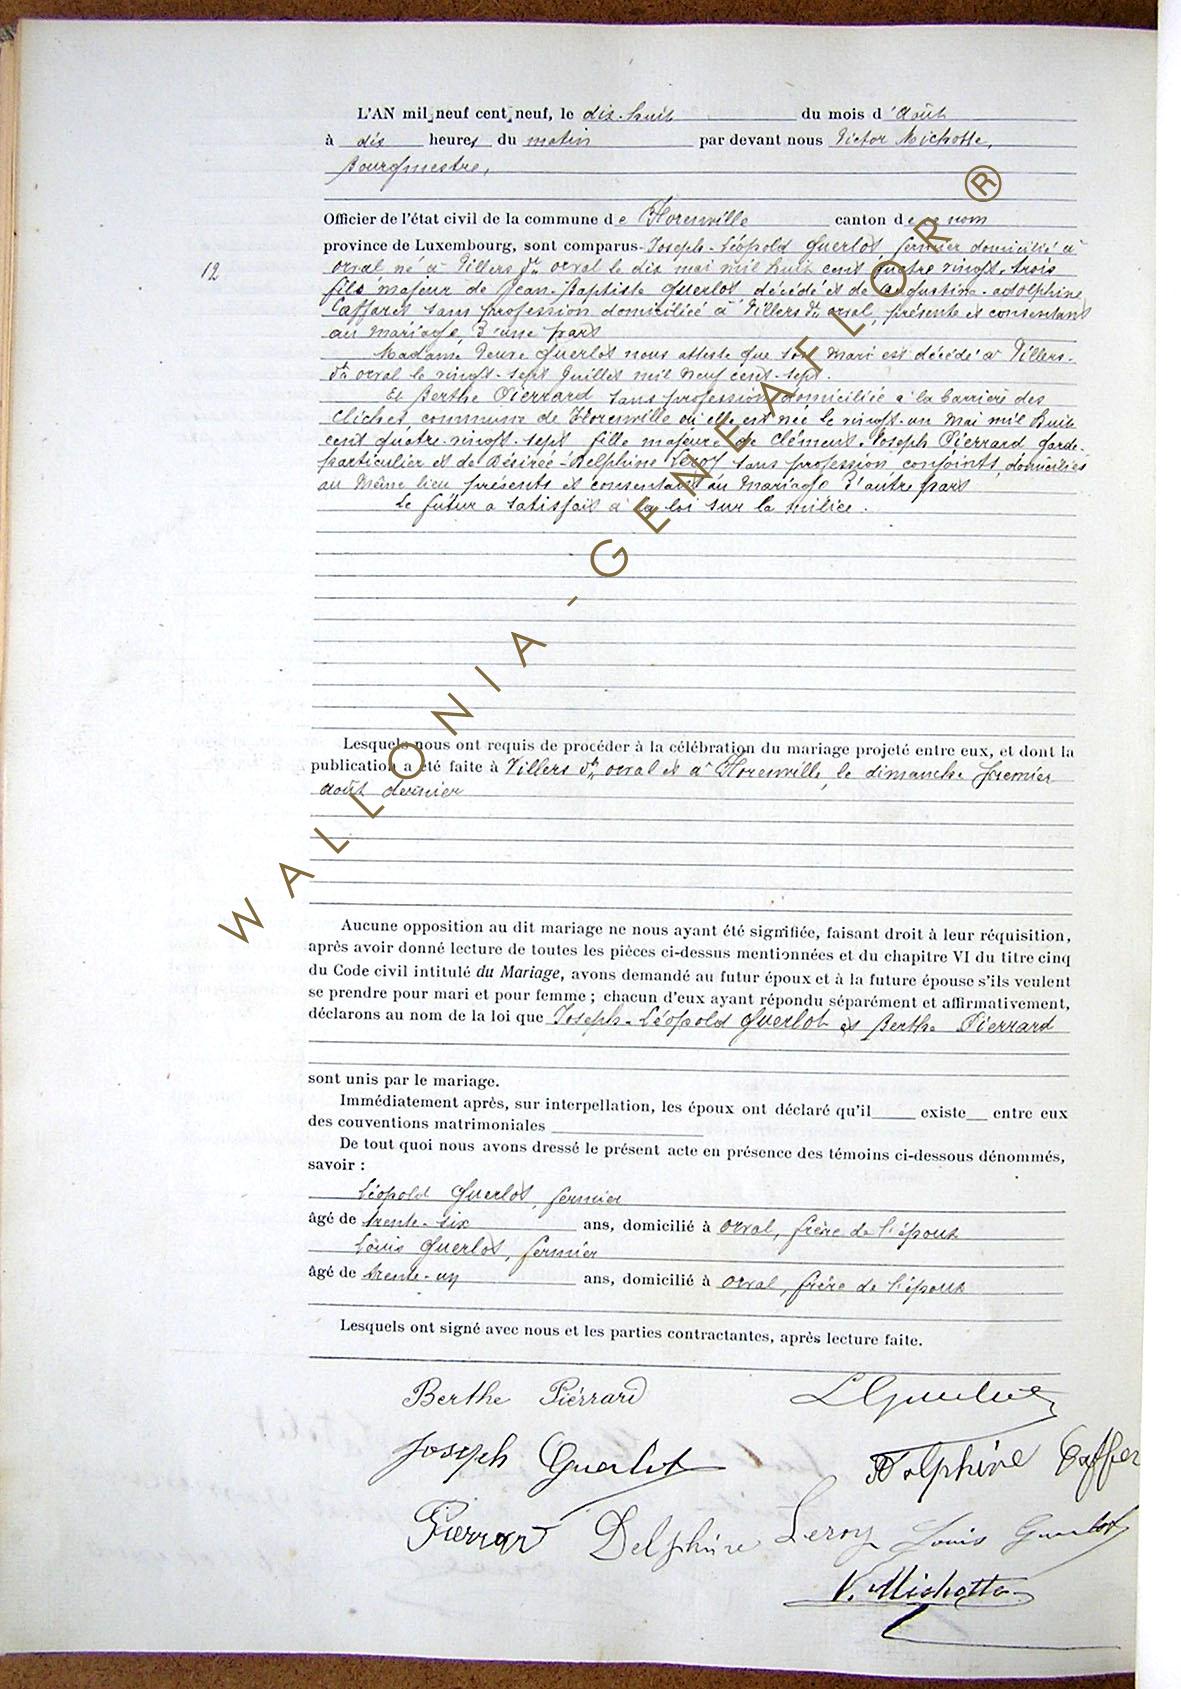 L'AN mil neuf cent neuf, le dix-huit du mois d'Août
à dix heures du matin par devant nous Victor Michotte,
Bourgmestre,
Officier de l'état civil de la commune de Florenville canton de ce nom
province de Luxembourg, sont comparus Joseph-Léopold Guerlot fermier domicilié à
12
orval né à Villers dt orval le dix mai mil huit cent quatre vingt-trois
fils majeur de Jean-Baptiste Guerlot décédé et de Augustine-adolphine
Caffaret sans profession domiciliée à Villers dt orval, présente et consentant
au mariage, d'une part
Madame Veuve Guerlot nous atteste que son mari est décédé à Villers-
dt orval le vingt-sept Juillet mil neuf cent-sept.
Et Berthe Pierrard sans profession domiciliée à la barrière des
Clichet commune de Florenville où elle est née le vingt-un Mai mil huit
cent quatre-vingt-sept fille majeure de Clément-Joseph Pierrard garde-
particulier et de Désirée-Delphine Leroy sans profession conjoints, domiciliés
au même lieu présents et consentant au mariage d'autre part
Le futur a satisfait à la loi sur la milice.
Lesquels nous ont requis de procéder à la célébration du mariage projeté entre eux, et dont la
publication a été faite à Villers dt orval et à Florenville, le dimanche premier
août dernier
Aucune opposition au dit mariage ne nous ayant été signifiée, faisant droit à leur réquisition,
après avoir donné lecture de toutes les pièces ci-dessus mentionnées et du chapitre VI du titre cinq
du Code civil intitulé du Mariage, avons demandé au futur époux et à la future épouse s'ils veulent
se prendre pour mari et pour femme ; chacun d'eux ayant répondu séparément et affirmativement,
déclarons au nom de la loi que Joseph-Léopold Guerlot et Berthe Pierrard
sont unis par le mariage.
Immédiatement après, sur interpellation, les époux ont déclaré qu'il existe entre eux
des conventions matrimoniales
De tout quoi nous avons dressé le présent acte en présence des témoins ci-dessous dénommés,
savoir :
Léopold Guerlot, fermier
âgé de trente-six ans, domicilié à orval, frère de l'époux
Louis Guerlot, fermier
âgé de trente-un ans, domicilié à orval, frère de l'époux
Lesquels ont signé avec nous et les parties contractantes, après lecture faite.
Berthe Piérrard LGuerlot
Joseph Guerlot Adolphine Caffer
Pierrard Delphine Leroy Louis Guerlot
V. Michotte
WALLONIA-GENEAFLOR ®